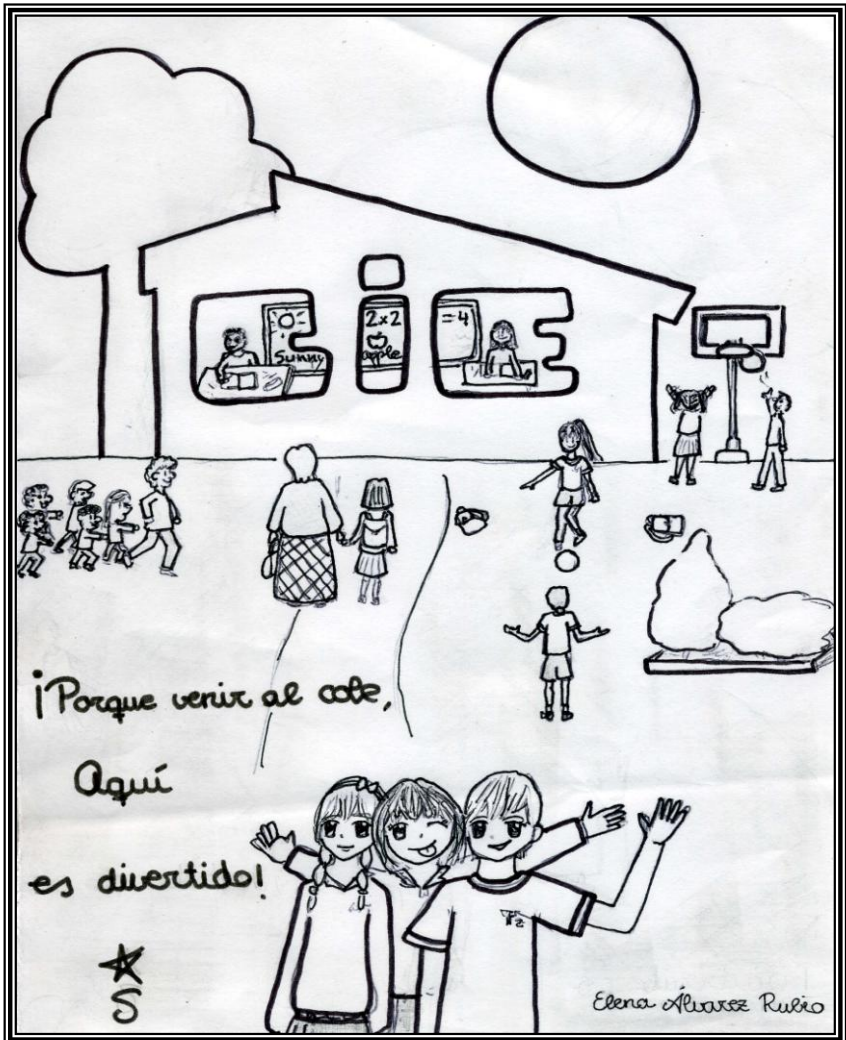 CiE
Sunny
2x2
apple
=4
¡Porque venir al cole,
Aquí
es divertido!
S
Elena Álvarez Rubio